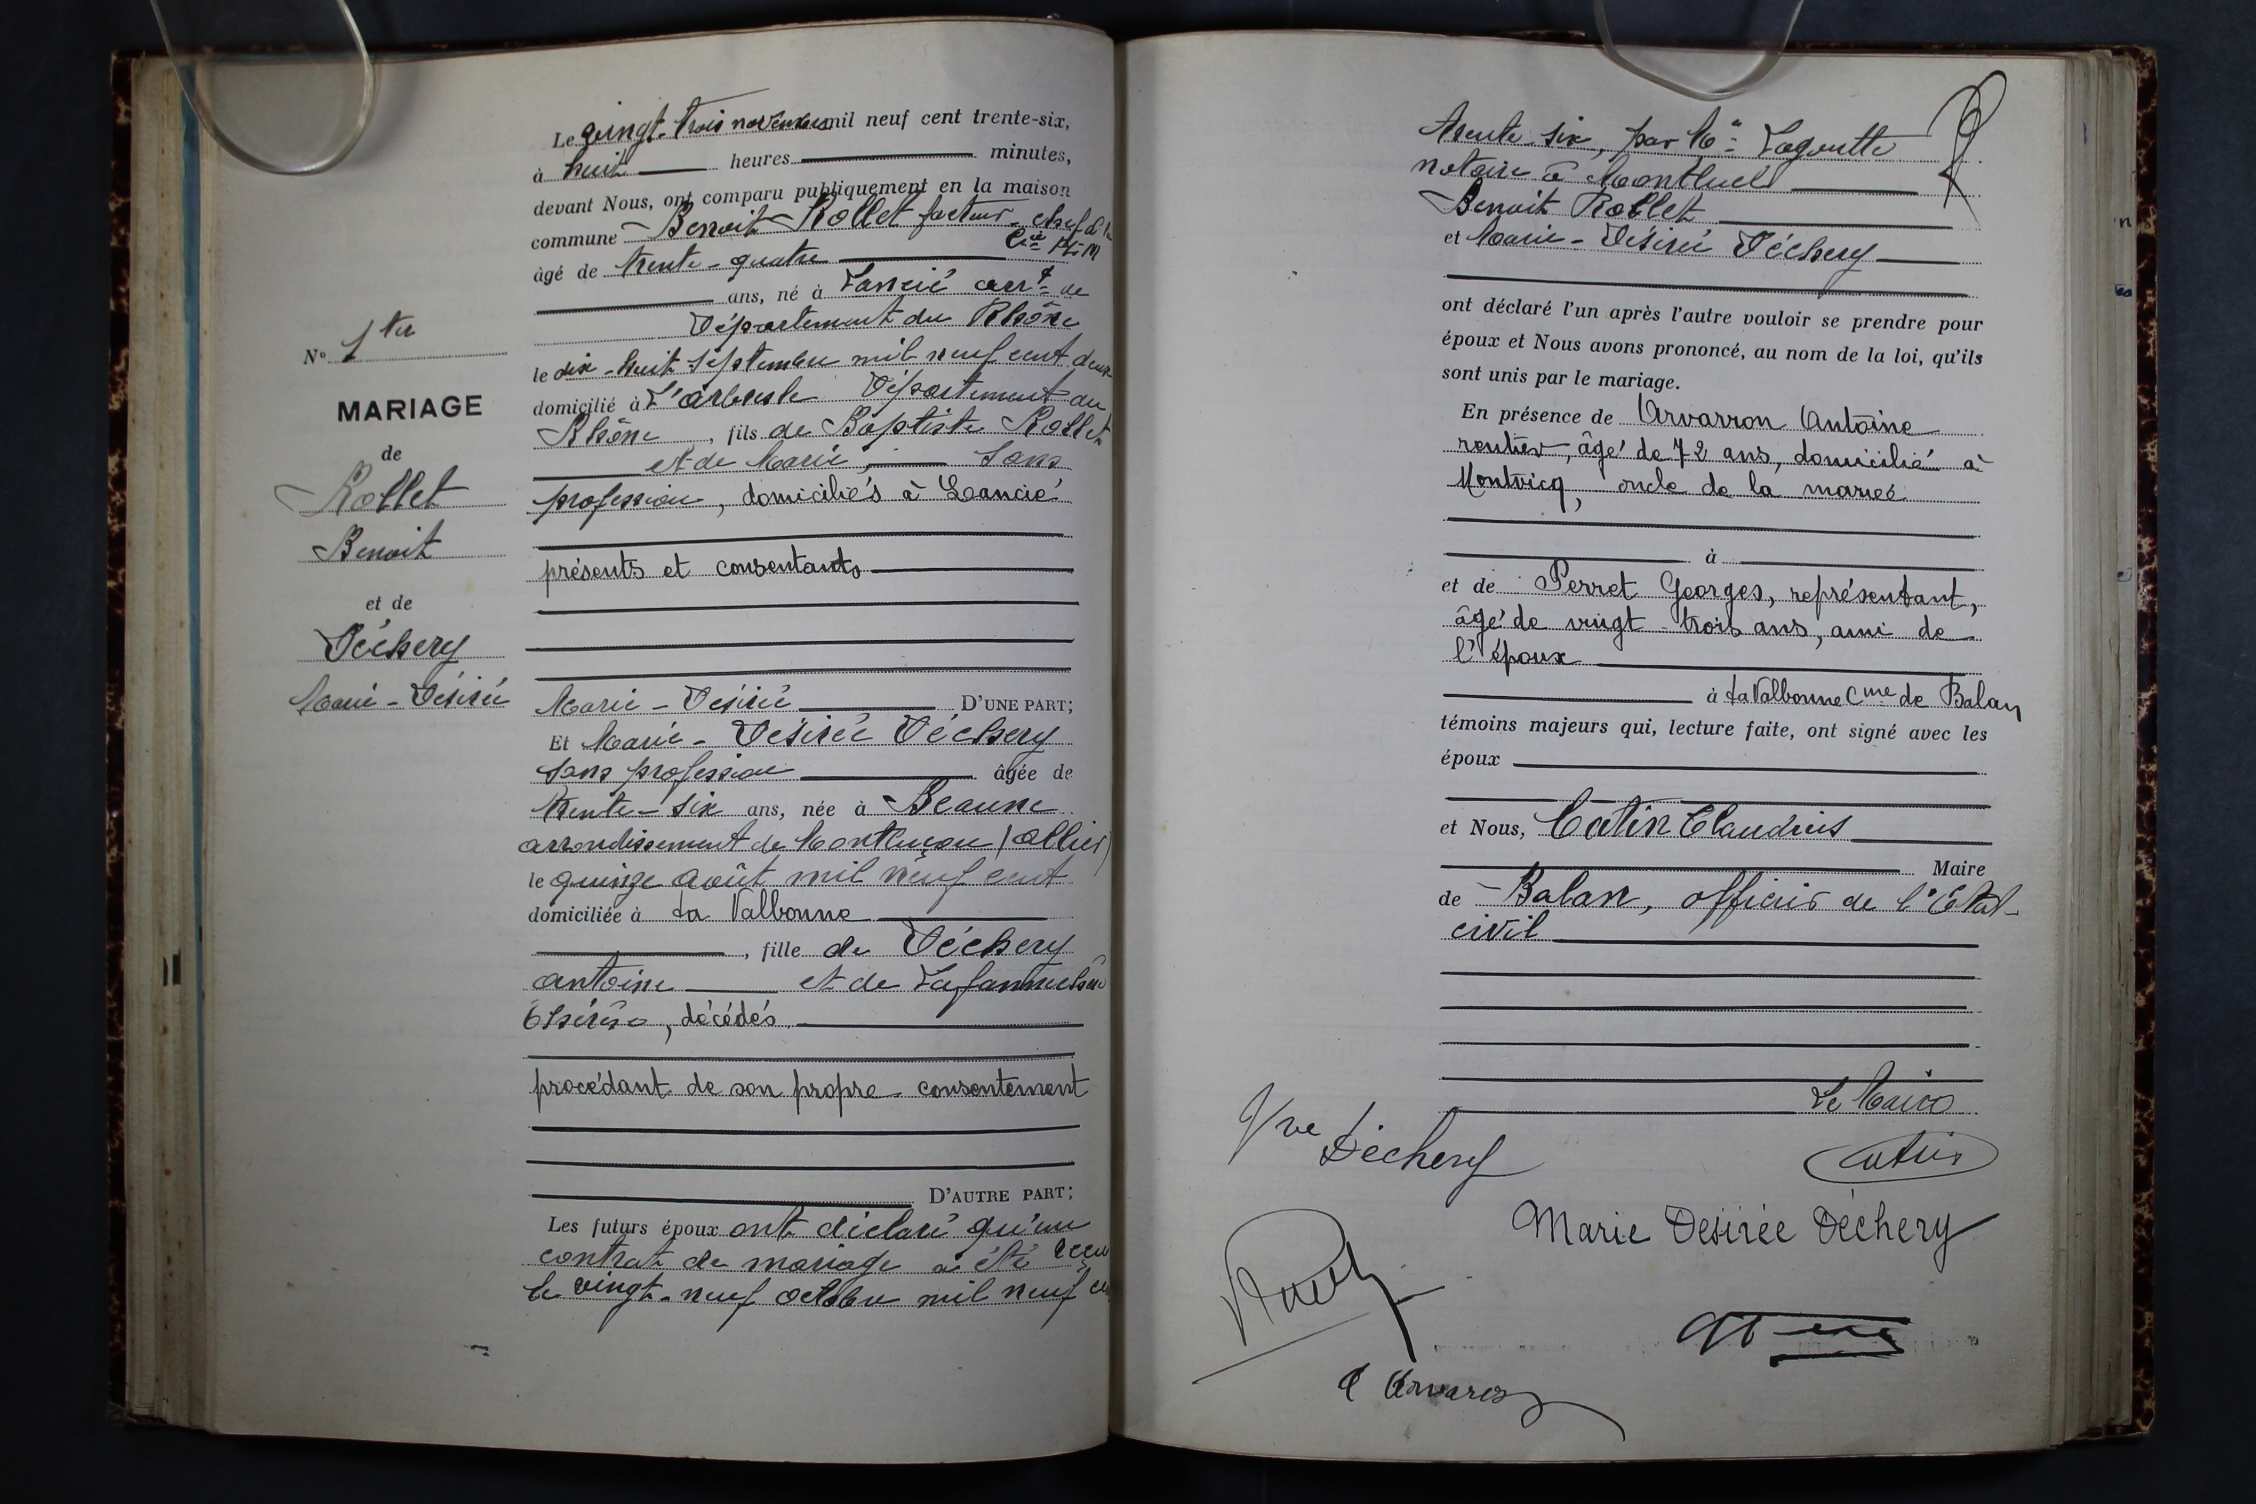 Le vingt-trois novembre mil neuf cent trente-six,
à huit heures minutes,
devant Nous, ont comparu publiquement en la maison
commune Benoit Rollet facteur-chef à la
Cie PLM
âgé de trente-quatre
ans, né à Lancié arrt de
Département du Rhône
le dix-huit septembre mil neuf cent deux
domicilié à L'arbresle Département du
Rhône, fils de Baptiste Rollet
et de Marie, Sans
profession, domiciliés à Lancié
présents et consentants
Marie-Désirée D'UNE PART;
Et Marie-Désirée Déchery
sans profession âgée de
trente-six ans, née à Beaune
arrondissement de Montluçon (Allier)
le quinze août mil neuf cent
domiciliée à La Valbonne
, fille de Déchery
Antoine et de
Thérèse, décédés
procédant de son propre consentement
D'AUTRE PART;
Les futurs époux ont déclaré qu'un
contrat de mariage a été reçu
le vingt-neuf octobre mil neuf cent
N° 1er
MARIAGE
de
Rollet
Benoit
et de
Déchery
Marie-Désirée
trente-six, par Me Lagoutte
notaire à Montluel
Benoit Rollet
et Marie-Désirée Déchery
ont déclaré l'un après l'autre vouloir se prendre pour
époux et Nous avons prononcé, au nom de la loi, qu'ils
sont unis par le mariage.
En présence de Arvarron Antoine
rentier, âgé de 72 ans, domicilié à
Montvicq, oncle de la mariée
à
et de Perret Georges, représentant,
âgé de vingt-trois ans, ami de
l'époux
à La Valbonne Cme de Balan
témoins majeurs qui, lecture faite, ont signé avec les
époux
et Nous, Catin Claudius
Maire
de Balan, officier de l'Etat-
civil
Le Maire
Vve Déchery
Catin
Marie Désirée Déchery